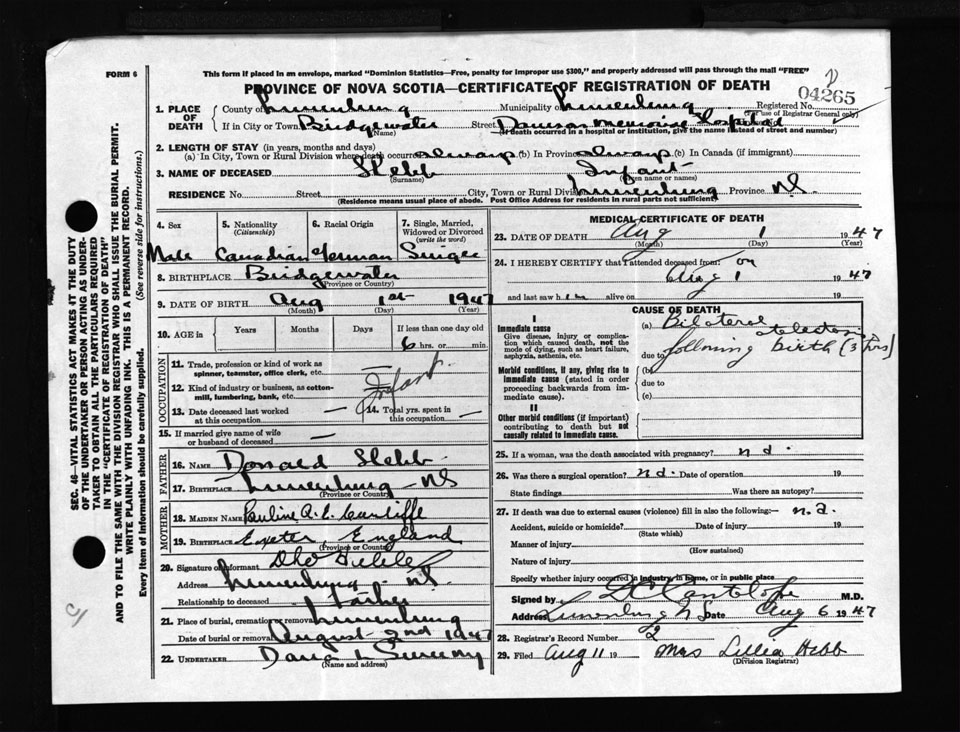 FORM 6
This form if placed in an envelope, marked "Dominion Statistics—Free, penalty for improper use $300," and properly addressed will pass through the mail "FREE"
PROVINCE OF NOVA SCOTIA—CERTIFICATE OF REGISTRATION OF DEATH
04265
1. PLACE OF DEATH
County of Lunenburg Municipality of Lunenburg Registered No.
(For use of Registrar General only)
If in City or Town Bridgewater Street Dawson Memorial Hospital
(Name) (If death occurred in a hospital or institution, give the name instead of street and number)
2. LENGTH OF STAY (in years, months and days)
(a) In City, Town or Rural Division where death occurred always (b) In Province always (c) In Canada (if immigrant)
3. NAME OF DECEASED Infant
(Surname) (Given name or names)
RESIDENCE No. Street City, Town or Rural Division Lunenburg Province NS
(Residence means usual place of abode. Post Office Address for residents in rural parts not sufficient)
4. Sex
Male
5. Nationality
(Citizenship)
Canadian
6. Racial Origin
German
7. Single, Married, Widowed or Divorced
(write the word)
Single
8. BIRTHPLACE Bridgewater
(Province or Country)
9. DATE OF BIRTH Aug 1st 1947
(Month) (Day) (Year)
10. AGE in Years Months Days If less than one day old
6 hrs. or min.
OCCUPATION
11. Trade, profession or kind of work as spinner, teamster, office clerk, etc. —
12. Kind of industry or business, as cotton-mill, lumbering, bank, etc. Infant
13. Date deceased last worked at this occupation —
14. Total yrs. spent in this occupation —
15. If married give name of wife or husband of deceased —
FATHER
16. NAME Donald
17. Birthplace Lunenburg — NS
(Province or Country)
MOTHER
18. MAIDEN NAME Pauline A. E.
19. BIRTHPLACE Exeter, England
(Province or Country)
20. Signature of informant
Address Lunenburg - NS.
Relationship to deceased Father
21. Place of burial, cremation or removal Lunenburg
Date of burial or removal August 2nd 1947
22. UNDERTAKER
(Name and address)
MEDICAL CERTIFICATE OF DEATH
23. DATE OF DEATH Aug 1 1947
(Month) (Day) (Year)
24. I HEREBY CERTIFY that I attended deceased from: on
Aug 1 1947
and last saw him alive on 19
CAUSE OF DEATH
I
Immediate cause
Give disease, injury or complication which caused death, not the mode of dying, such as heart failure, asphyxia, asthenia, etc.
(a) Bilateral
due to following birth (3 hrs)
Morbid conditions, if any, giving rise to immediate cause (stated in order proceeding backwards from immediate cause).
(b)
due to
(c)
II
Other morbid conditions (if important) contributing to death but not causally related to immediate cause.
25. If a woman, was the death associated with pregnancy? n a.
26. Was there a surgical operation? n a. Date of operation 19
State findings Was there an autopsy?
27. If death was due to external causes (violence) fill in also the following:— n.a.
Accident, suicide or homicide? Date of injury 19
(State which)
Manner of injury
(How sustained)
Nature of injury
Specify whether injury occurred in industry, in home, or in public place
Signed by M.D.
Address Lunenburg N S Date Aug 6 1947
28. Registrar's Record Number 2
29. Filed Aug 11 19 Mrs Lillia Hebb
(Division Registrar)
SEC. 46—VITAL STATISTICS ACT MAKES IT THE DUTY
OF THE UNDERTAKER OR PERSON ACTING AS UNDERTAKER TO OBTAIN ALL THE PARTICULARS REQUIRED
IN THE "CERTIFICATE OF REGISTRATION OF DEATH"
AND TO FILE THE SAME WITH THE DIVISION REGISTRAR WHO SHALL ISSUE THE BURIAL PERMIT.
WRITE PLAINLY WITH UNFADING INK. THIS IS A PERMANENT RECORD.
Every item of Information should be carefully supplied. (See reverse side for instructions.)